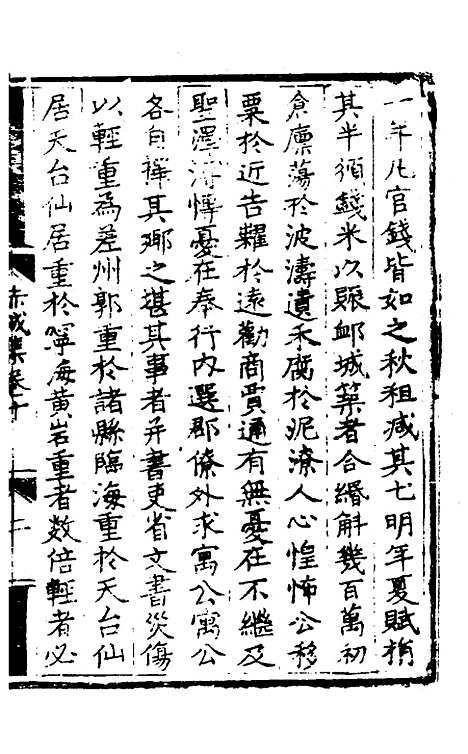 一年凡官錢皆如之秋租減其七明年夏賦捐
其半須錢米以賑卹城築者合緡斛幾百萬初
倉廩蕩於波濤遺禾腐於泥潦人心惶怖公移
粟於近告糴於遠勸商賈通有無憂在不繼及
聖澤溥博憂在奉行内選郡僚外求寓公寓公
各自擇其鄉之堪其事者弁書吏省文書災傷
以輕重為差州郭重於諸縣臨海重於天台仙
居天台仙居重於寧海黃岩重者数倍輕者必
赤城集卷十